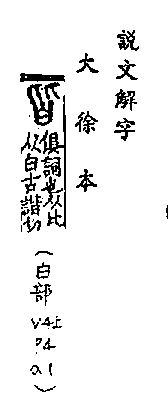 說文解字
大徐本
皆
俱詞也从比
从白古諧切
(白部 V4上 P4 a1)